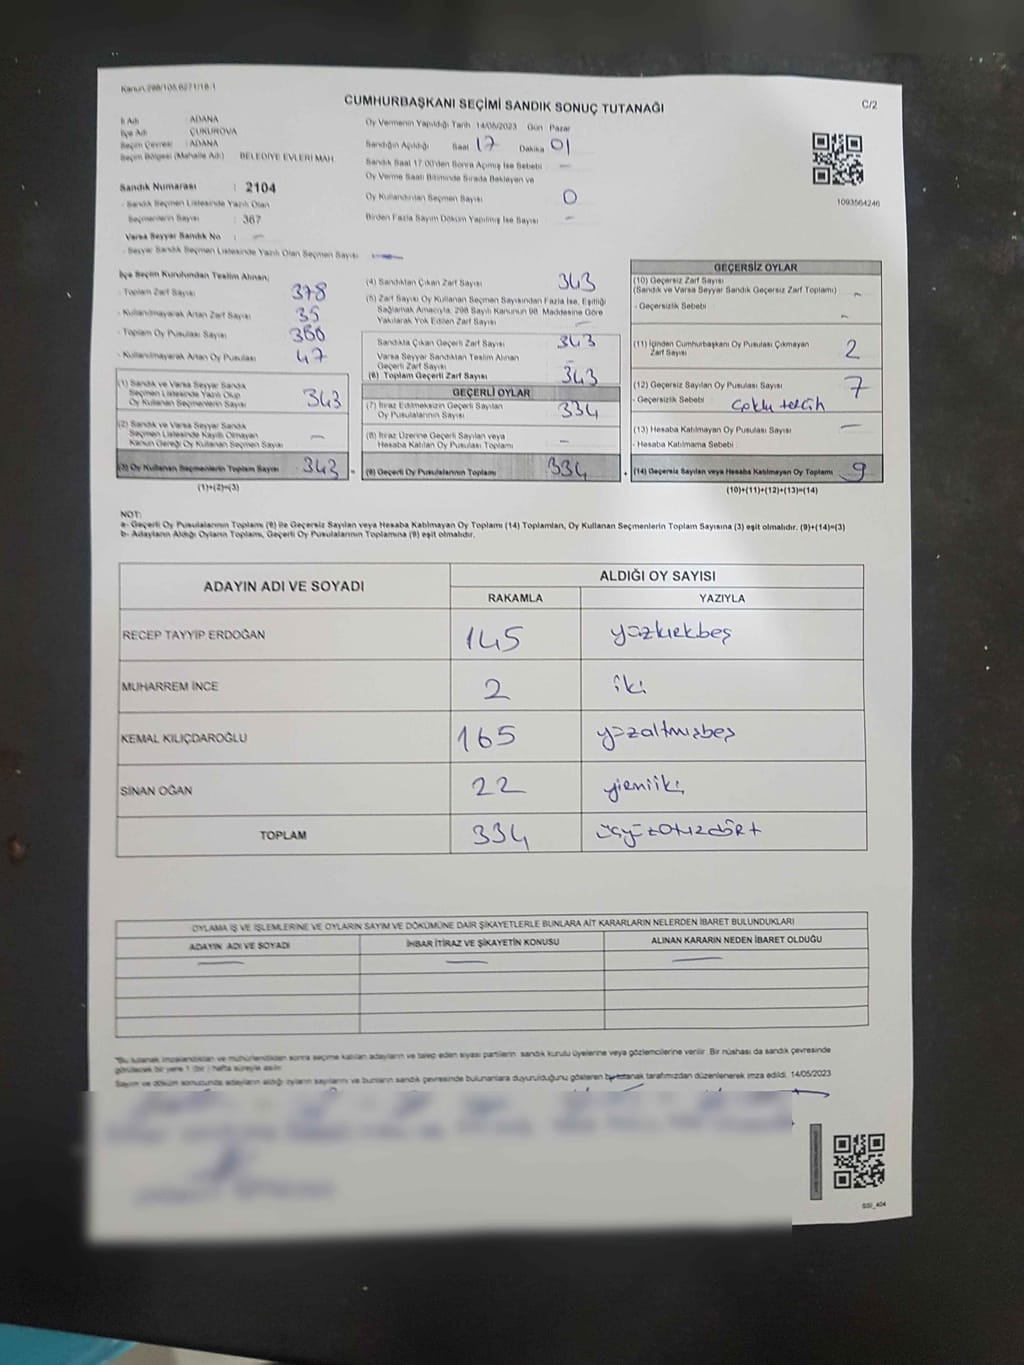 Kanun:298/105,6271/18-1
CUMHURBAŞKANI SEÇİMİ SANDIK SONUÇ TUTANAĞI
C/2
İl Adı : ADANA
İlçe Adı : ÇUKUROVA
Seçim Çevresi : ADANA
Seçim Bölgesi (Mahalle Adı) BELEDİYE EVLERİ MAH.
Sandık Numarası : 2104
- Sandık Seçmen Listesinde Yazılı Olan
Seçmenlerin Sayısı : 367
Varsa Seyyar Sandık No : –
- Seyyar Sandık Seçmen Listesinde Yazılı Olan Seçmen Sayısı –
Oy Vermenin Yapıldığı Tarih 14/05/2023 Gün : Pazar
Sandığın Açıldığı Saat 17 Dakika 01
Sandık Saat 17.00'den Sonra Açılmış İse Sebebi : –
Oy Verme Saati Bitiminde Sırada Bekleyen ve
Oy Kullandırılan Seçmen Sayısı 0
Birden Fazla Sayım Döküm Yapılmış İse Sayısı –
1093564246
İlçe Seçim Kurulundan Teslim Alınan;
- Toplam Zarf Sayısı 378
- Kullanılmayarak Artan Zarf Sayısı 35
- Toplam Oy Pusulası Sayısı
- Kullanılmayarak Artan Oy Pusulası 47
(1) Sandık ve Varsa Seyyar Sandık
Seçmen Listesinde Yazılı Olup
Oy Kullanan Seçmenlerin Sayısı 343
(2) Sandık ve Varsa Seyyar Sandık
Seçmen Listesinde Kayıtlı Olmayan
Kanun Gereği Oy Kullanan Seçmen Sayısı –
(3) Oy Kullanan Seçmenlerin Toplam Sayısı 343 =
(1)+(2)=(3)
(4) Sandıktan Çıkan Zarf Sayısı 343
(5) Zarf Sayısı Oy Kullanan Seçmen Sayısından Fazla İse, Eşitliği
Sağlamak Amacıyla, 298 Sayılı Kanunun 98. Maddesine Göre
Yakılarak Yok Edilen Zarf Sayısı –
Sandıkta Çıkan Geçerli Zarf Sayısı 343
Varsa Seyyar Sandıktan Teslim Alınan
Geçerli Zarf Sayısı –
(6) Toplam Geçerli Zarf Sayısı 343
GEÇERLİ OYLAR
(7) İtiraz Edilmeksizin Geçerli Sayılan
Oy Pusulalarının Sayısı 334
(8) İtiraz Üzerine Geçerli Sayılan veya
Hesaba Katılan Oy Pusulası Toplamı –
(9) Geçerli Oy Pusulalarının Toplamı 334 +
GEÇERSİZ OYLAR
(10) Geçersiz Zarf Sayısı
(Sandık ve Varsa Seyyar Sandık Geçersiz Zarf Toplamı) –
- Geçersizlik Sebebi –
(11) İçinden Cumhurbaşkanı Oy Pusulası Çıkmayan
Zarf Sayısı 2
(12) Geçersiz Sayılan Oy Pusulası Sayısı 7
- Geçersizlik Sebebi çoklu tercih
(13) Hesaba Katılmayan Oy Pusulası Sayısı –
- Hesaba Katılmama Sebebi :
(14) Geçersiz Sayılan veya Hesaba Katılmayan Oy Toplamı 9
(10)+(11)+(12)+(13)=(14)
NOT:
a- Geçerli Oy Pusulalarının Toplamı (9) ile Geçersiz Sayılan veya Hesaba Katılmayan Oy Toplamı (14) Toplamları, Oy Kullanan Seçmenlerin Toplam Sayısına (3) eşit olmalıdır. (9)+(14)=(3)
b- Adayların Aldığı Oyların Toplamı, Geçerli Oy Pusulalarının Toplamına (9) eşit olmalıdır.
ADAYIN ADI VE SOYADI
ALDIĞI OY SAYISI
RAKAMLA YAZIYLA
RECEP TAYYİP ERDOĞAN 145 yüzkırkbeş
MUHARREM İNCE 2 iki
KEMAL KILIÇDAROĞLU 165 yüzaltmışbeş
SİNAN OĞAN 22 yirmiiki
TOPLAM 334 üçyüzotuzdört
OYLAMA İŞ VE İŞLEMLERİNE VE OYLARIN SAYIM VE DÖKÜMÜNE DAİR ŞİKAYETLERLE BUNLARA AİT KARARLARIN NELERDEN İBARET BULUNDUKLARI
ADAYIN ADI VE SOYADI İHBAR İTİRAZ VE ŞİKAYETİN KONUSU ALINAN KARARIN NEDEN İBARET OLDUĞU
– – –
*Bu tutanak imzalandıktan ve mühürlendikten sonra seçime katılan adayların ve talep eden siyasi partilerin sandık kurulu üyelerine veya gözlemcilerine verilir. Bir nüshası da sandık çevresinde
görülecek bir yere 1 (bir) hafta süreyle asılır.
Sayım ve döküm sonucunda adayların aldığı oyların sayılarını ve bunların sandık çevresinde bulunanlara duyurulduğunu gösteren bu tutanak tarafımızdan düzenlenerek imza edildi. 14/05/2023
SSİ_404